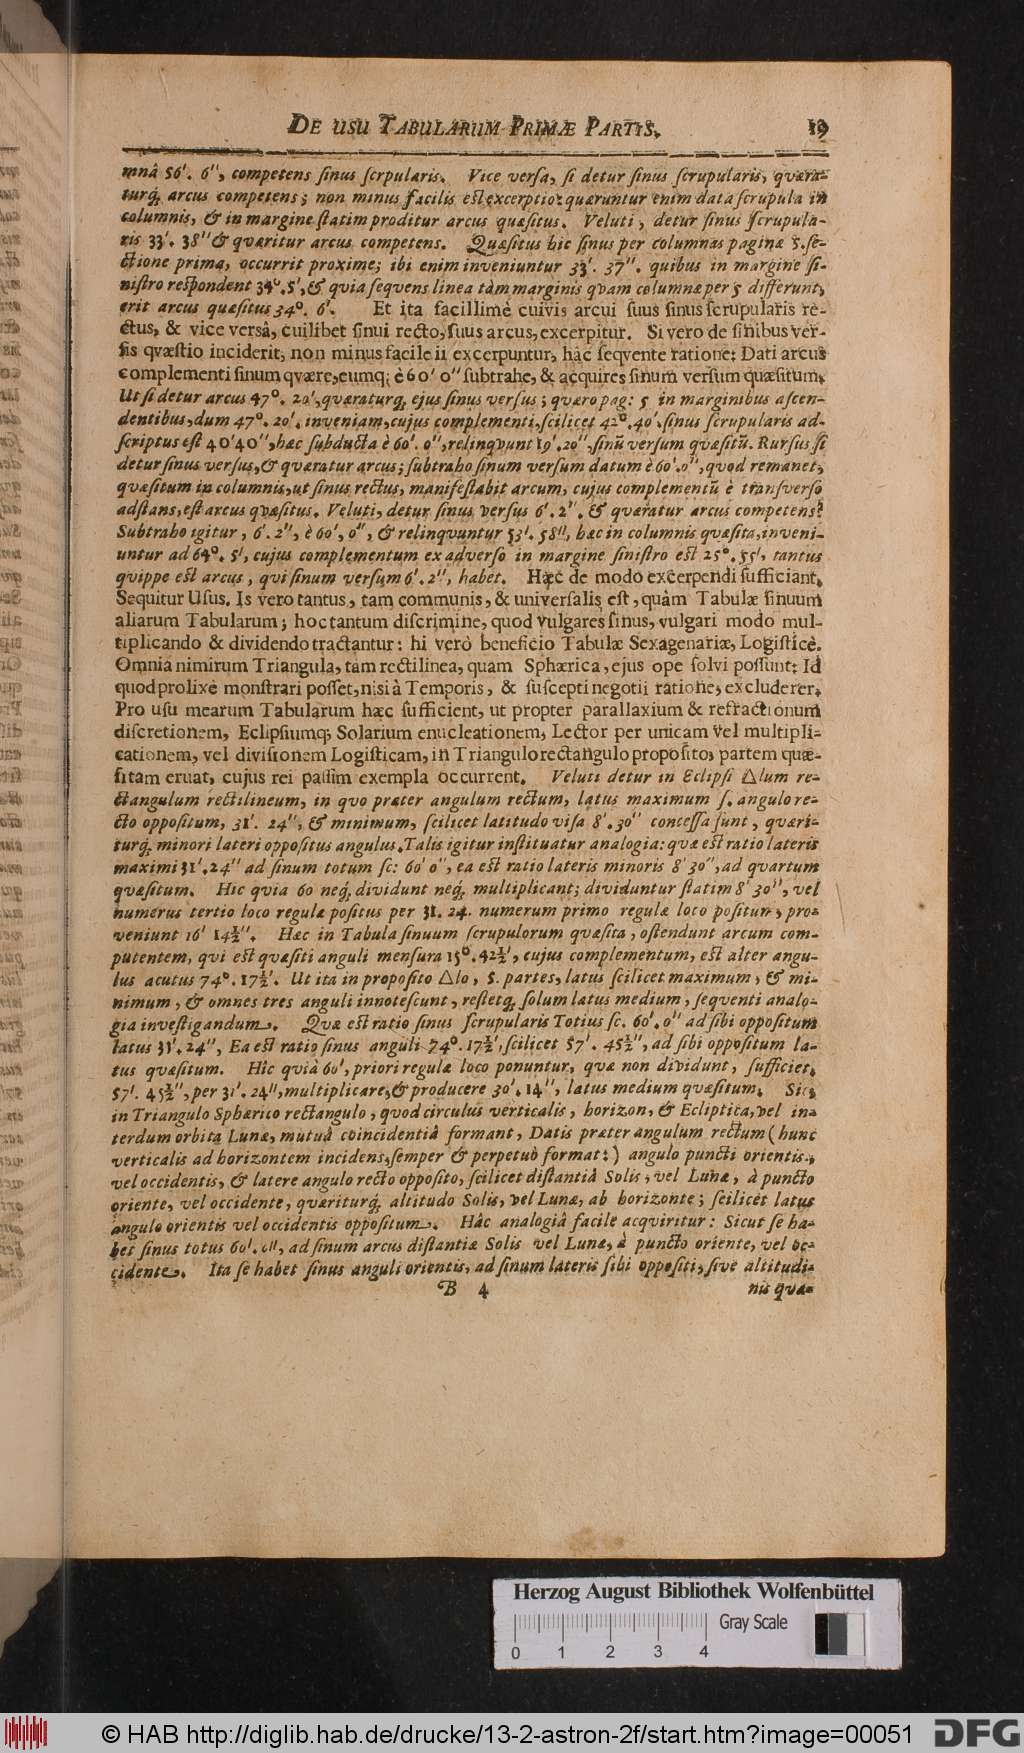 DE USU TABULARUM PRIMÆ PARTIS. 19
mnâ 56'. 6'', competens ſinus ſcrpularis. Vice verſa, ſi detur ſinus ſcrupularis, quæra-
turq; arcus competens; non minus facilis eſt excerptio: quæruntur enim data ſcrupula in
columnis, & in margine ſtatim proditur arcus quæſitus. Veluti, detur ſinus ſcrupula-
ris 33'. 38'' & quæritur arcus competens. Quæſitus hic ſinus per columnas paginæ 5. ſe-
ctione prima, occurrit proxime; ibi enim inveniuntur 33'. 37''. quibus in margine ſi-
niſtro reſpondent 34°. 5', & quia ſequens linea tàm marginis qvam columnæ per 5 differunt,
erit arcus quæſitus 34°. 6'. Et ita facillimè cuivis arcui ſuus ſinus ſcrupularis re-
ctus, & vice versâ, cuilibet ſinui recto, ſuus arcus, excerpitur. Si vero de ſinibus ver-
ſis qvæſtio inciderit, non minus facile ii excerpuntur, hâc ſeqvente ratione: Dati arcus
complementi ſinum qvære, eumq; è 60' 0'' ſubtrahe, & acquires ſinum verſum quæſitum.
Ut ſi detur arcus 47°. 20', quæraturq; ejus ſinus verſus; quæro pag: 5 in marginibus aſcen-
dentibus, dum 47°. 20'. inveniam, cujus complementi, ſcilicet 42°. 40'. ſinus ſcrupularis ad-
ſcriptus eſt 40' 40'', hæc ſubducta è 60'. 0'', relinqvunt 19'. 20''. ſinū verſum quæſitū. Rurſus ſi
detur ſinus verſus, & quæratur arcus; ſubtraho ſinum verſum datum è 60'. 0'', quod remanet,
quæſitum in columnis, ut ſinus rectus, manifeſtabit arcum, cujus complementū è tranſverſo
adſtans, eſt arcus qvæſitus. Veluti, detur ſinus verſus 6'. 2''. & quæratur arcus competens?
Subtraho igitur, 6'. 2'', è 60', 0'', & relinqvuntur 53'. 58'', hæc in columnis quæſita, inveni-
untur ad 64°. 5', cujus complementum ex adverſo in margine ſiniſtro eſt 25°. 55', tantus
qvippe eſt arcus, qui ſinum verſum 6'. 2'', habet. Hæc de modo excerpendi ſufficiant.
Sequitur Uſus. Is vero tantus, tam communis, & univerſalis eſt, quàm Tabulæ ſinuum
aliarum Tabularum; hoc tantum diſcrimine, quod vulgares ſinus, vulgari modo mul-
tiplicando & dividendo tractantur: hi verò beneficio Tabulæ Sexagenariæ, Logiſticè.
Omnia nimirum Triangula, tam rectilinea, quàm Sphærica, ejus ope ſolvi poſſunt: Id
quod prolixè monſtrari poſſet, niſi à Temporis, & ſuſcepti negotii ratione, excluderer.
Pro uſu mearum Tabularum hæc ſufficient, ut propter parallaxium & refractionum
diſcretionem, Eclipſiumq; Solarium enucleationem, Lector per unicam vel multipli-
cationem, vel diviſionem Logiſticam, in Triangulo rectangulo propoſito, partem quæ-
ſitam eruat, cujus rei paſſim exempla occurrent. Veluti detur in Eclipſi △lum re-
ctangulum rectilineum, in quo præter angulum rectum, latus maximum ſ. angulo re-
cto oppoſitum, 31'. 24'', & minimum, ſcilicet latitudo viſa 8'. 30'' conceſſa ſunt, quæri-
turq; minori lateri oppoſitus angulus. Talis igitur inſtituatur analogia: quæ eſt ratio lateris
maximi 31'. 24'' ad ſinum totum ſc: 60' 0'', ea eſt ratio lateris minoris 8' 30'', ad quartum
quæſitum. Hic qvia 60 neq; dividunt neq; multiplicant; dividuntur ſtatim 8' 30'', vel
numerus tertio loco regulæ poſitus per 31. 24. numerum primo regulæ loco poſitum, pro-
veniunt 16' 14½''. Hæc in Tabula ſinuum ſcrupulorum quæſita, oſtendunt arcum com-
putentem, qvi eſt quæſiti anguli menſura 15°. 42½', cujus complementum, eſt alter angu-
lus acutus 74°. 17½'. Ut ita in propoſito △lo, 5. partes, latus ſcilicet maximum, & mi-
nimum, & omnes tres anguli innoteſcunt, reſtetq; ſolum latus medium, ſequenti analo-
gia inveſtigandum. Quæ eſt ratio ſinus ſcrupularis Totius ſc. 60'. 0'' ad ſibi oppoſitum
latus 31'. 24'', Ea eſt ratio ſinus anguli 74°. 17½', ſcilicet 57'. 45½'', ad ſibi oppoſitum la-
tus quæſitum. Hîc quià 60', priori regulæ loco ponuntur, quæ non dividunt, ſufficiet,
57'. 45½'', per 31'. 24'', multiplicare, & producere 30'. 14'', latus medium quæſitum. Sic,
in Triangulo Sphærico rectangulo, quod circulus verticalis, horizon, & Ecliptica, vel in-
terdum orbita Lunæ, mutuâ coincidentiâ formant, Datis præter angulum rectum (hunc
verticalis ad horizontem incidens, ſemper & perpetuò format:) angulo puncti orientis,
vel occidentis, & latere angulo recto oppoſito, ſcilicet diſtantiâ Solis, vel Lunæ, à puncto
oriente, vel occidente, quæriturq; altitudo Solis, vel Lunæ, ab horizonte; ſcilicèt latus
angulo orientis vel occidentis oppoſitum. Hâc analogiâ facile acqviritur: Sicut ſe ha-
bet ſinus totus 60'. 0'', ad ſinum arcus diſtantiæ Solis vel Lunæ, à puncto oriente, vel oc-
cidente. Ita ſe habet ſinus anguli orientis, ad ſinum lateris ſibi oppoſiti, ſive altitudi-
B 4 nis quæ-
Herzog August Bibliothek Wolfenbüttel
Gray Scale
0 1 2 3 4
© HAB http://diglib.hab.de/drucke/13-2-astron-2f/start.htm?image=00051 DFG